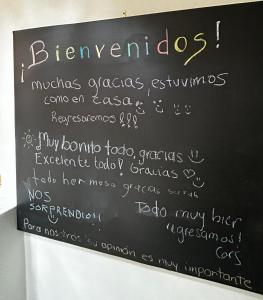 ¡Bienvenidos!
muchas gracias, estuvimos
como en casa
Regresaremos!!!
¡Muy bonito todo, gracias
Excelente todo! Gracias
todo hermoso gracias
NOS
SORPRENDIO!!
Todo muy bien
regresamos!
Para nosotros su opinión es muy importante